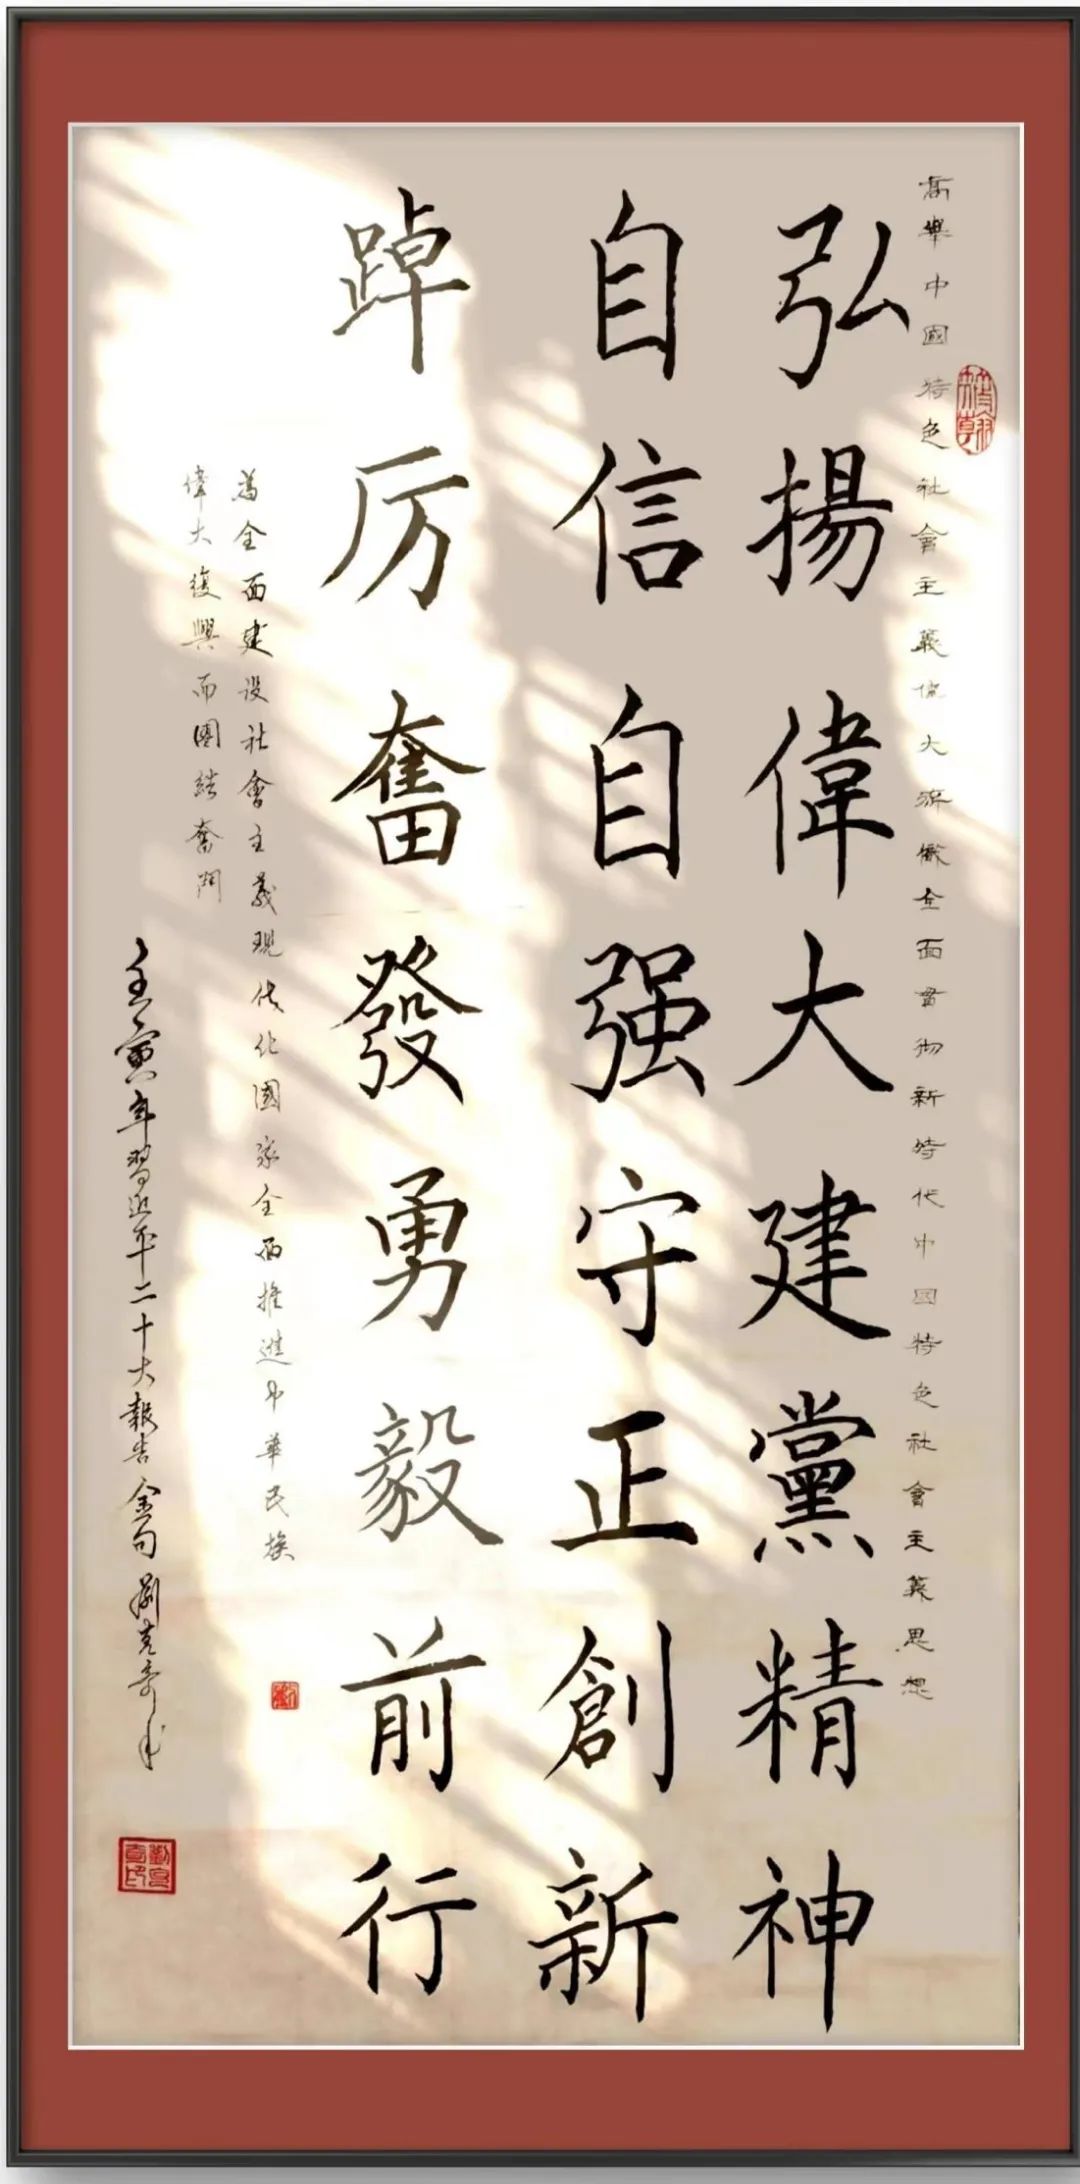 高舉中國特色社會主義偉大旗幟全面貫彻新時代中国特色社會主義思想
弘揚偉大建黨精神
自信自强守正創新
踔厉奮發勇毅前行
為全面建设社會主義現代化國家全面推進中華民族
偉大復興而團結奮鬥
壬寅年習近平二十大報告金句 劉克奇